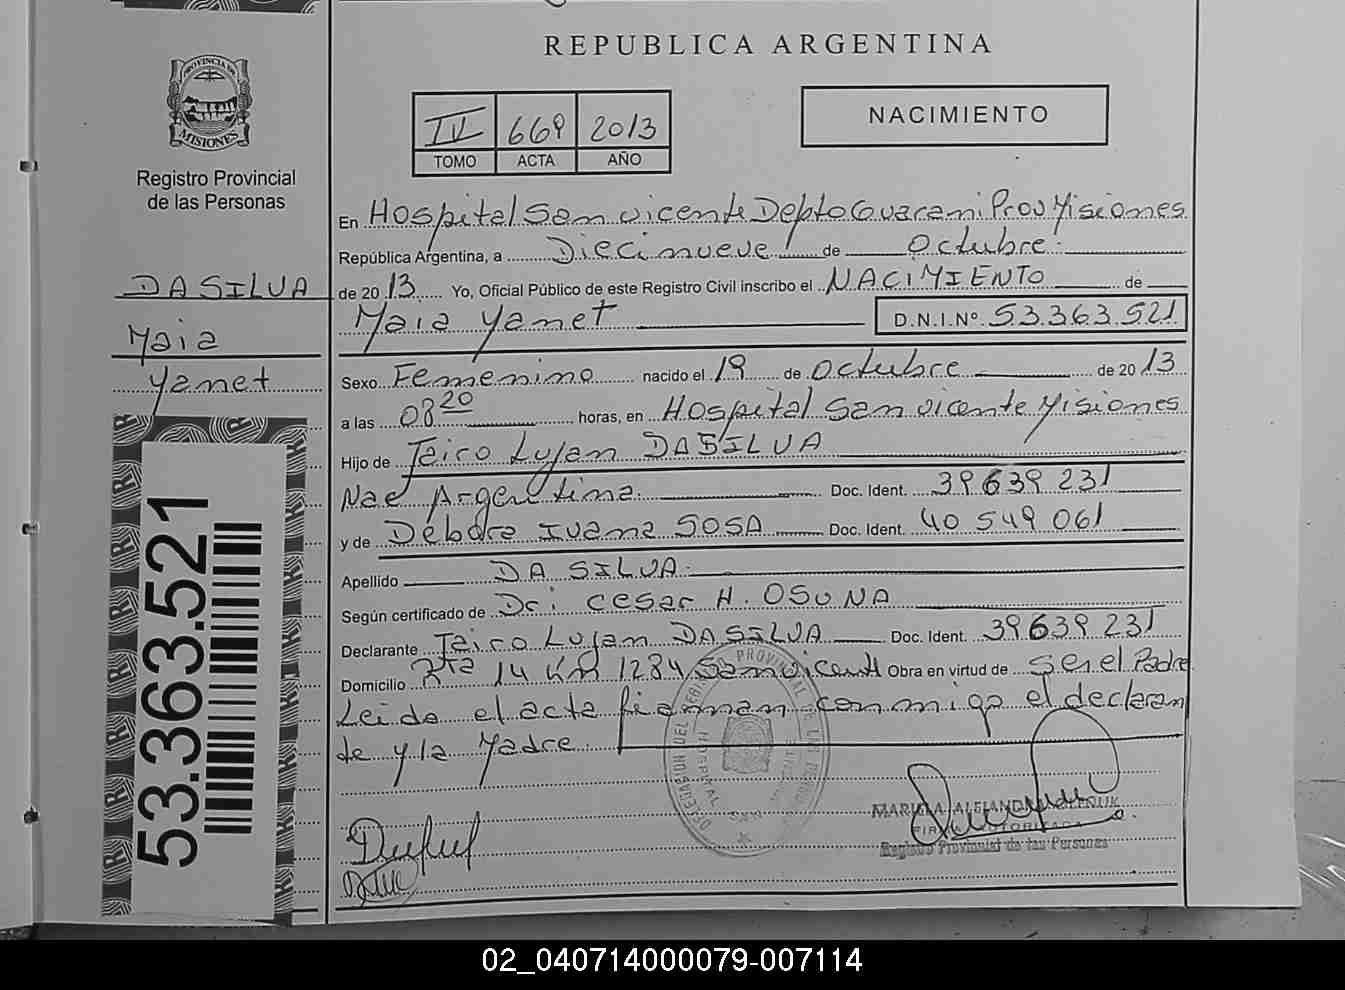 REPUBLICA ARGENTINA
PROVINCIA DE
MISIONES
Registro Provincial
de las Personas
IV 669 2013
TOMO ACTA AÑO
NACIMIENTO
En Hospital San Vicente Depto Guarani Prov Misiones
República Argentina, a Diecinueve de Octubre
de 2013 Yo, Oficial Público de este Registro Civil inscribo el NACIMIENTO de
Maia Yanet D.N.I.Nº 53.363.521
DA SILVA
Maia
Yanet
Sexo Femenino nacido el 19 de Octubre de 2013
a las 08 20 horas, en Hospital San Vicente Misiones
Hijo de Jairo Lujan DA SILVA
Nac Argentina Doc. Ident. 39 639 231
y de Debora Ivana SOSA Doc. Ident. 40 549 061
Apellido DA SILVA
Según certificado de Dr: Cesar H. OSUNA
Declarante Jairo Lujan DA SILVA Doc. Ident. 39639 231
Domicilio Rta 14 Km 1284 San Vicente Obra en virtud de Ser el Padre
Leida el acta firman conmigo el declaran
te y la Madre
53.363.521
PROVINCIAL DE LAS
HOSPITAL
Registro Provincial de las Personas
02_040714000079-007114